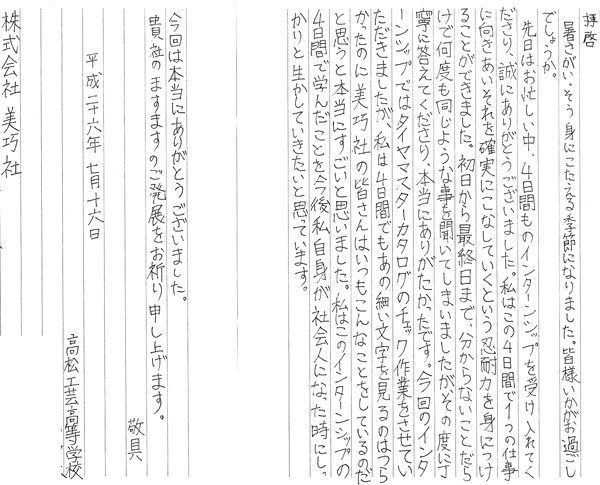 拝啓
暑さがいっそう身にこたえる季節になりました。皆様いかがお過ごし
でしょうか。
先日はお忙しい中、4日間ものインターンシップを受け入れてく
ださり、誠にありがとうございました。私はこの4日間で1つの仕事
に向きあいそれを確実にこなしていくという忍耐力を身につけ
ることができました。初日から最終日まで、分からないことだら
けで何度も同じような事を聞いてしまいましたがその度に丁
寧に答えてくださり、本当にありがたかったです。今回のインタ
ーンシップではタイヤマスターカタログのチェック作業をさせてい
ただきましたが、私は4日間でもあの細い文字を見るのはつら
かったのに美巧社の皆さんはいつもこんなことをしているのだ
と思うと本当にすごいと思いました。私はこのインターンシップの
4日間で学んだことを今後私自身が社会人になった時にしっ
かりと生かしていきたいと思っています。
今回は本当にありがとうございました。
貴社のますますのご発展をお祈り申し上げます。
敬具
平成二十六年七月十六日
高松工芸高等学校
株式会社 美巧社